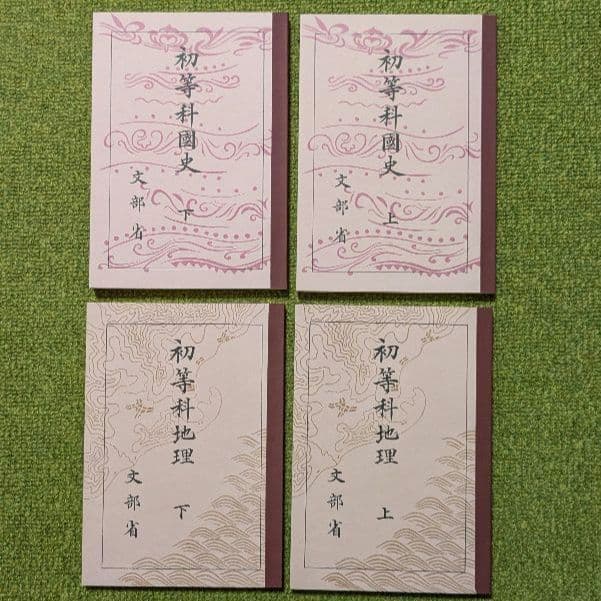 初等科國史
上
文部省
初等科國史
下
文部省
初等科地理
上
文部省
初等科地理
下
文部省